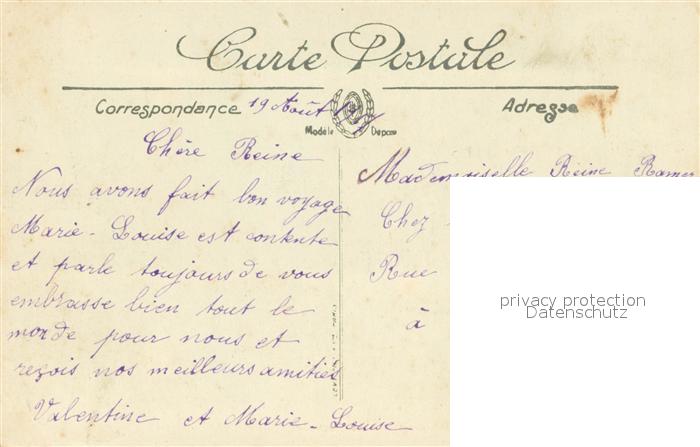 Carte Postale
Correspondance
19 Août
Adresse
Modèle Déposé
Chère Reine
Nous avons fait bon voyage
Marie-Louise est contente
et parle toujours de vous
embrasse bien tout le
monde pour nous et
reçois nos meilleurs amitiés
Valentine et Marie-Louise
Mademoiselle Reine
Chez
Rue
à
privacy protection
Datenschutz